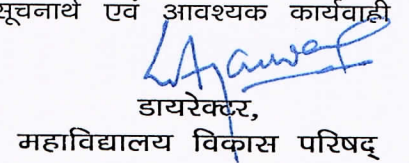 सूचनार्थ एवं आवश्यक कार्यवाही
डायरेक्टर,
महाविद्यालय विकास परिषद्